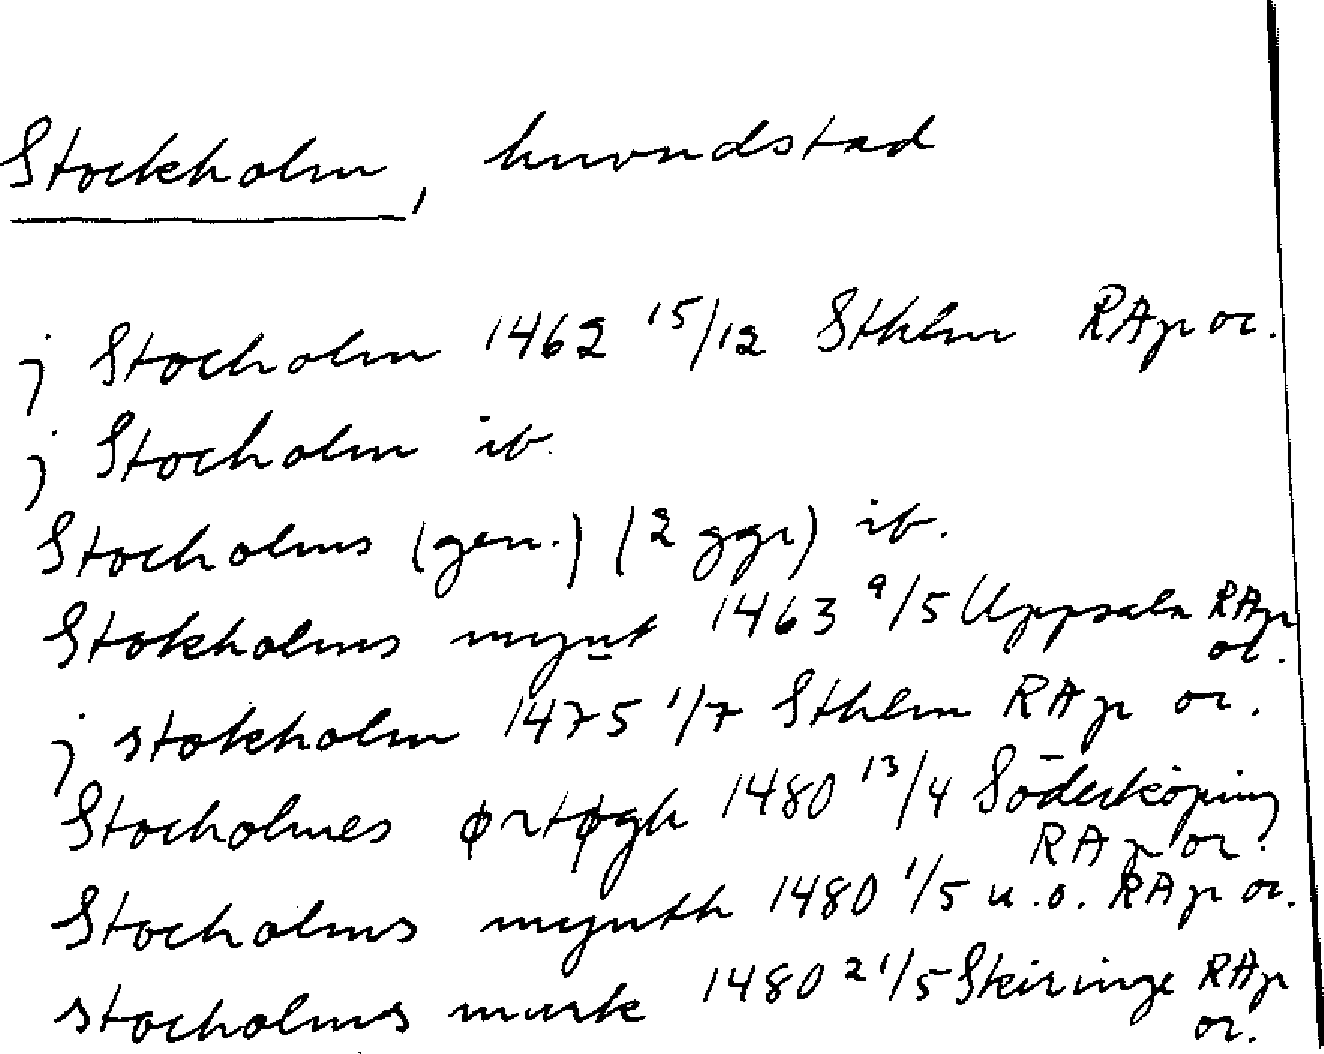 Stockholm, huvudstad
j Stocholm 1462 15/12 Sthlm RAp or.
j Stocholm ib.
Stocholms (gen.) (2 ggr) ib.
Stokholms mynt 1463 9/5 Uppsala RAp or.
j stokholm 1475 1/7 Sthlm RAp or.
Stocholmes ørtøgh 1480 13/4 Söderköping RAp or.
Stocholms mynth 1480 1/5 u.o. RAp or.
stocholms mark 1480 21/5 Skeninge RAp or.